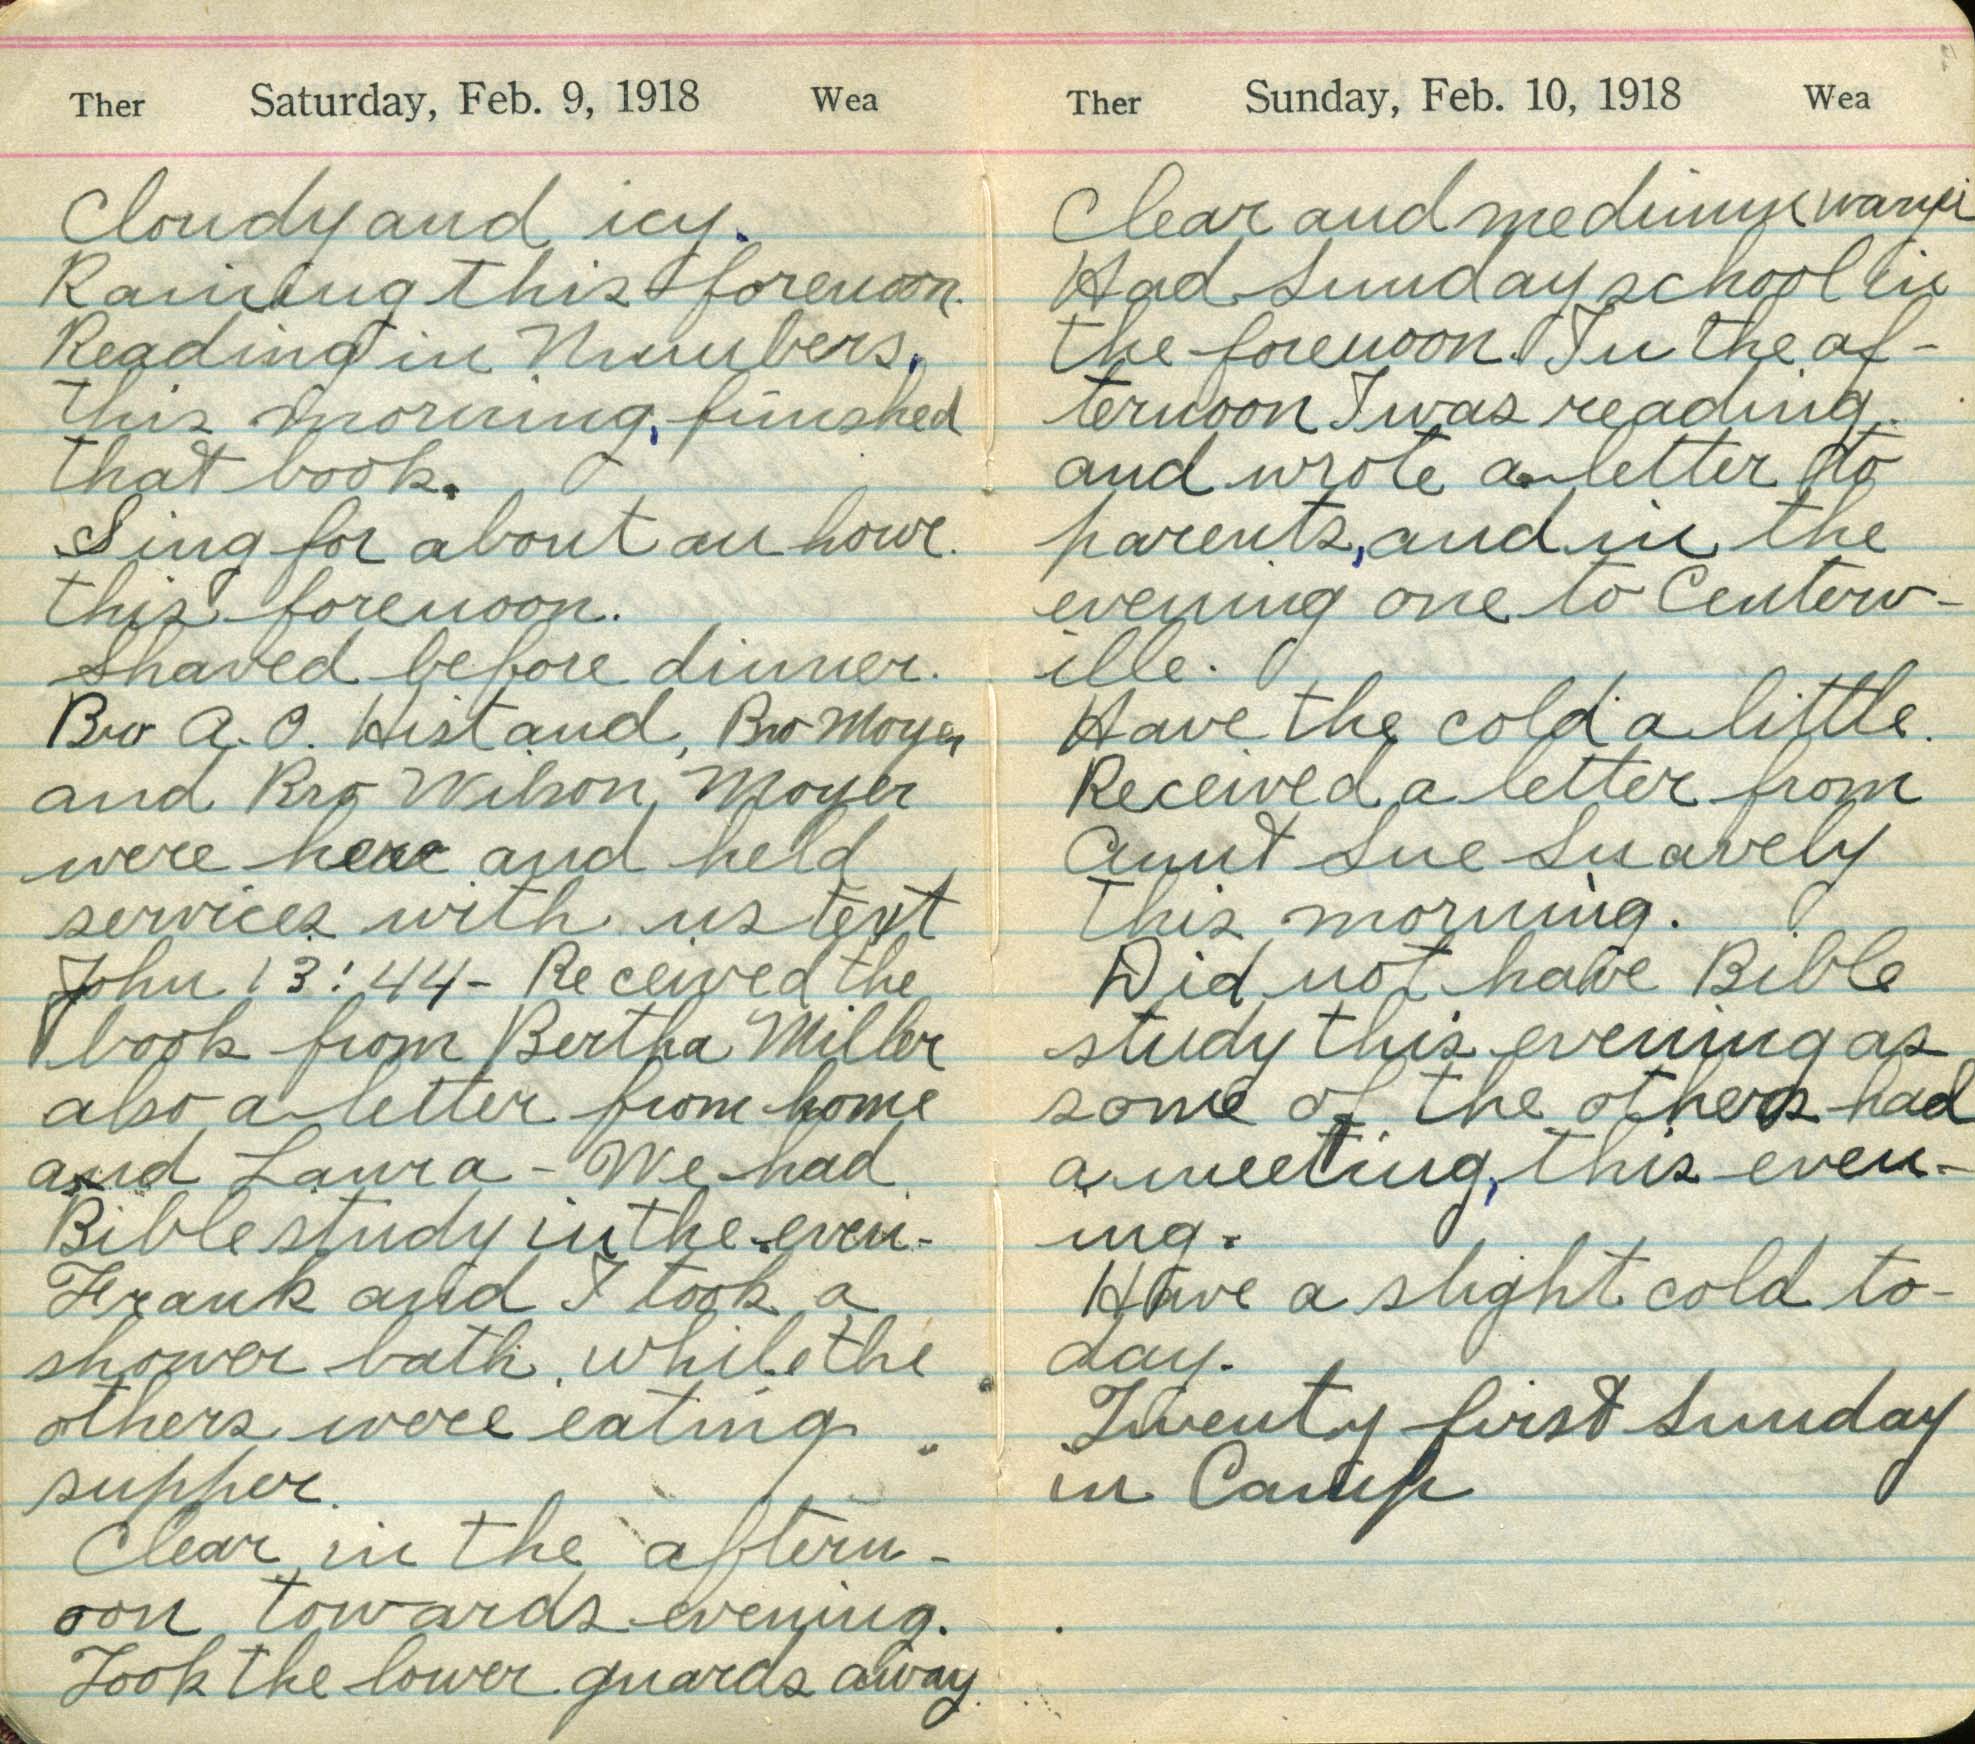 Ther Saturday, Feb. 9, 1918 Wea
Cloudy and icy.
Raining this forenoon.
Reading in Numbers,
this morning, finished
that book.
Sing for about an hour
this forenoon.
Shaved before dinner.
Bro A. O. Histand, Bro Moyer
and Bro Wilson Moyer
were here and held
services with us text
John 13:44- Received the
book from Bertha Miller
also a letter from home
and Laura - We had
Bible study in the even-
Frank and I took a
shower bath while the
others were eating
supper.
Clear in the aftern-
oon towards evening.
Took the lower guards away
Ther Sunday, Feb. 10, 1918 Wea
Clear and medium warm
Had Sunday school in
the forenoon. In the af-
ternoon I was reading
and wrote a letter to
parents, and in the
evening one to Centerv-
ille.
Have the cold a little.
Received a letter from
Aunt Sue Snavely
this morning.
Did not have Bible
study this evening as
some of the others had
a meeting, this even-
ing.
Have a slight cold to-
day.
Twenty first Sunday
in Camp